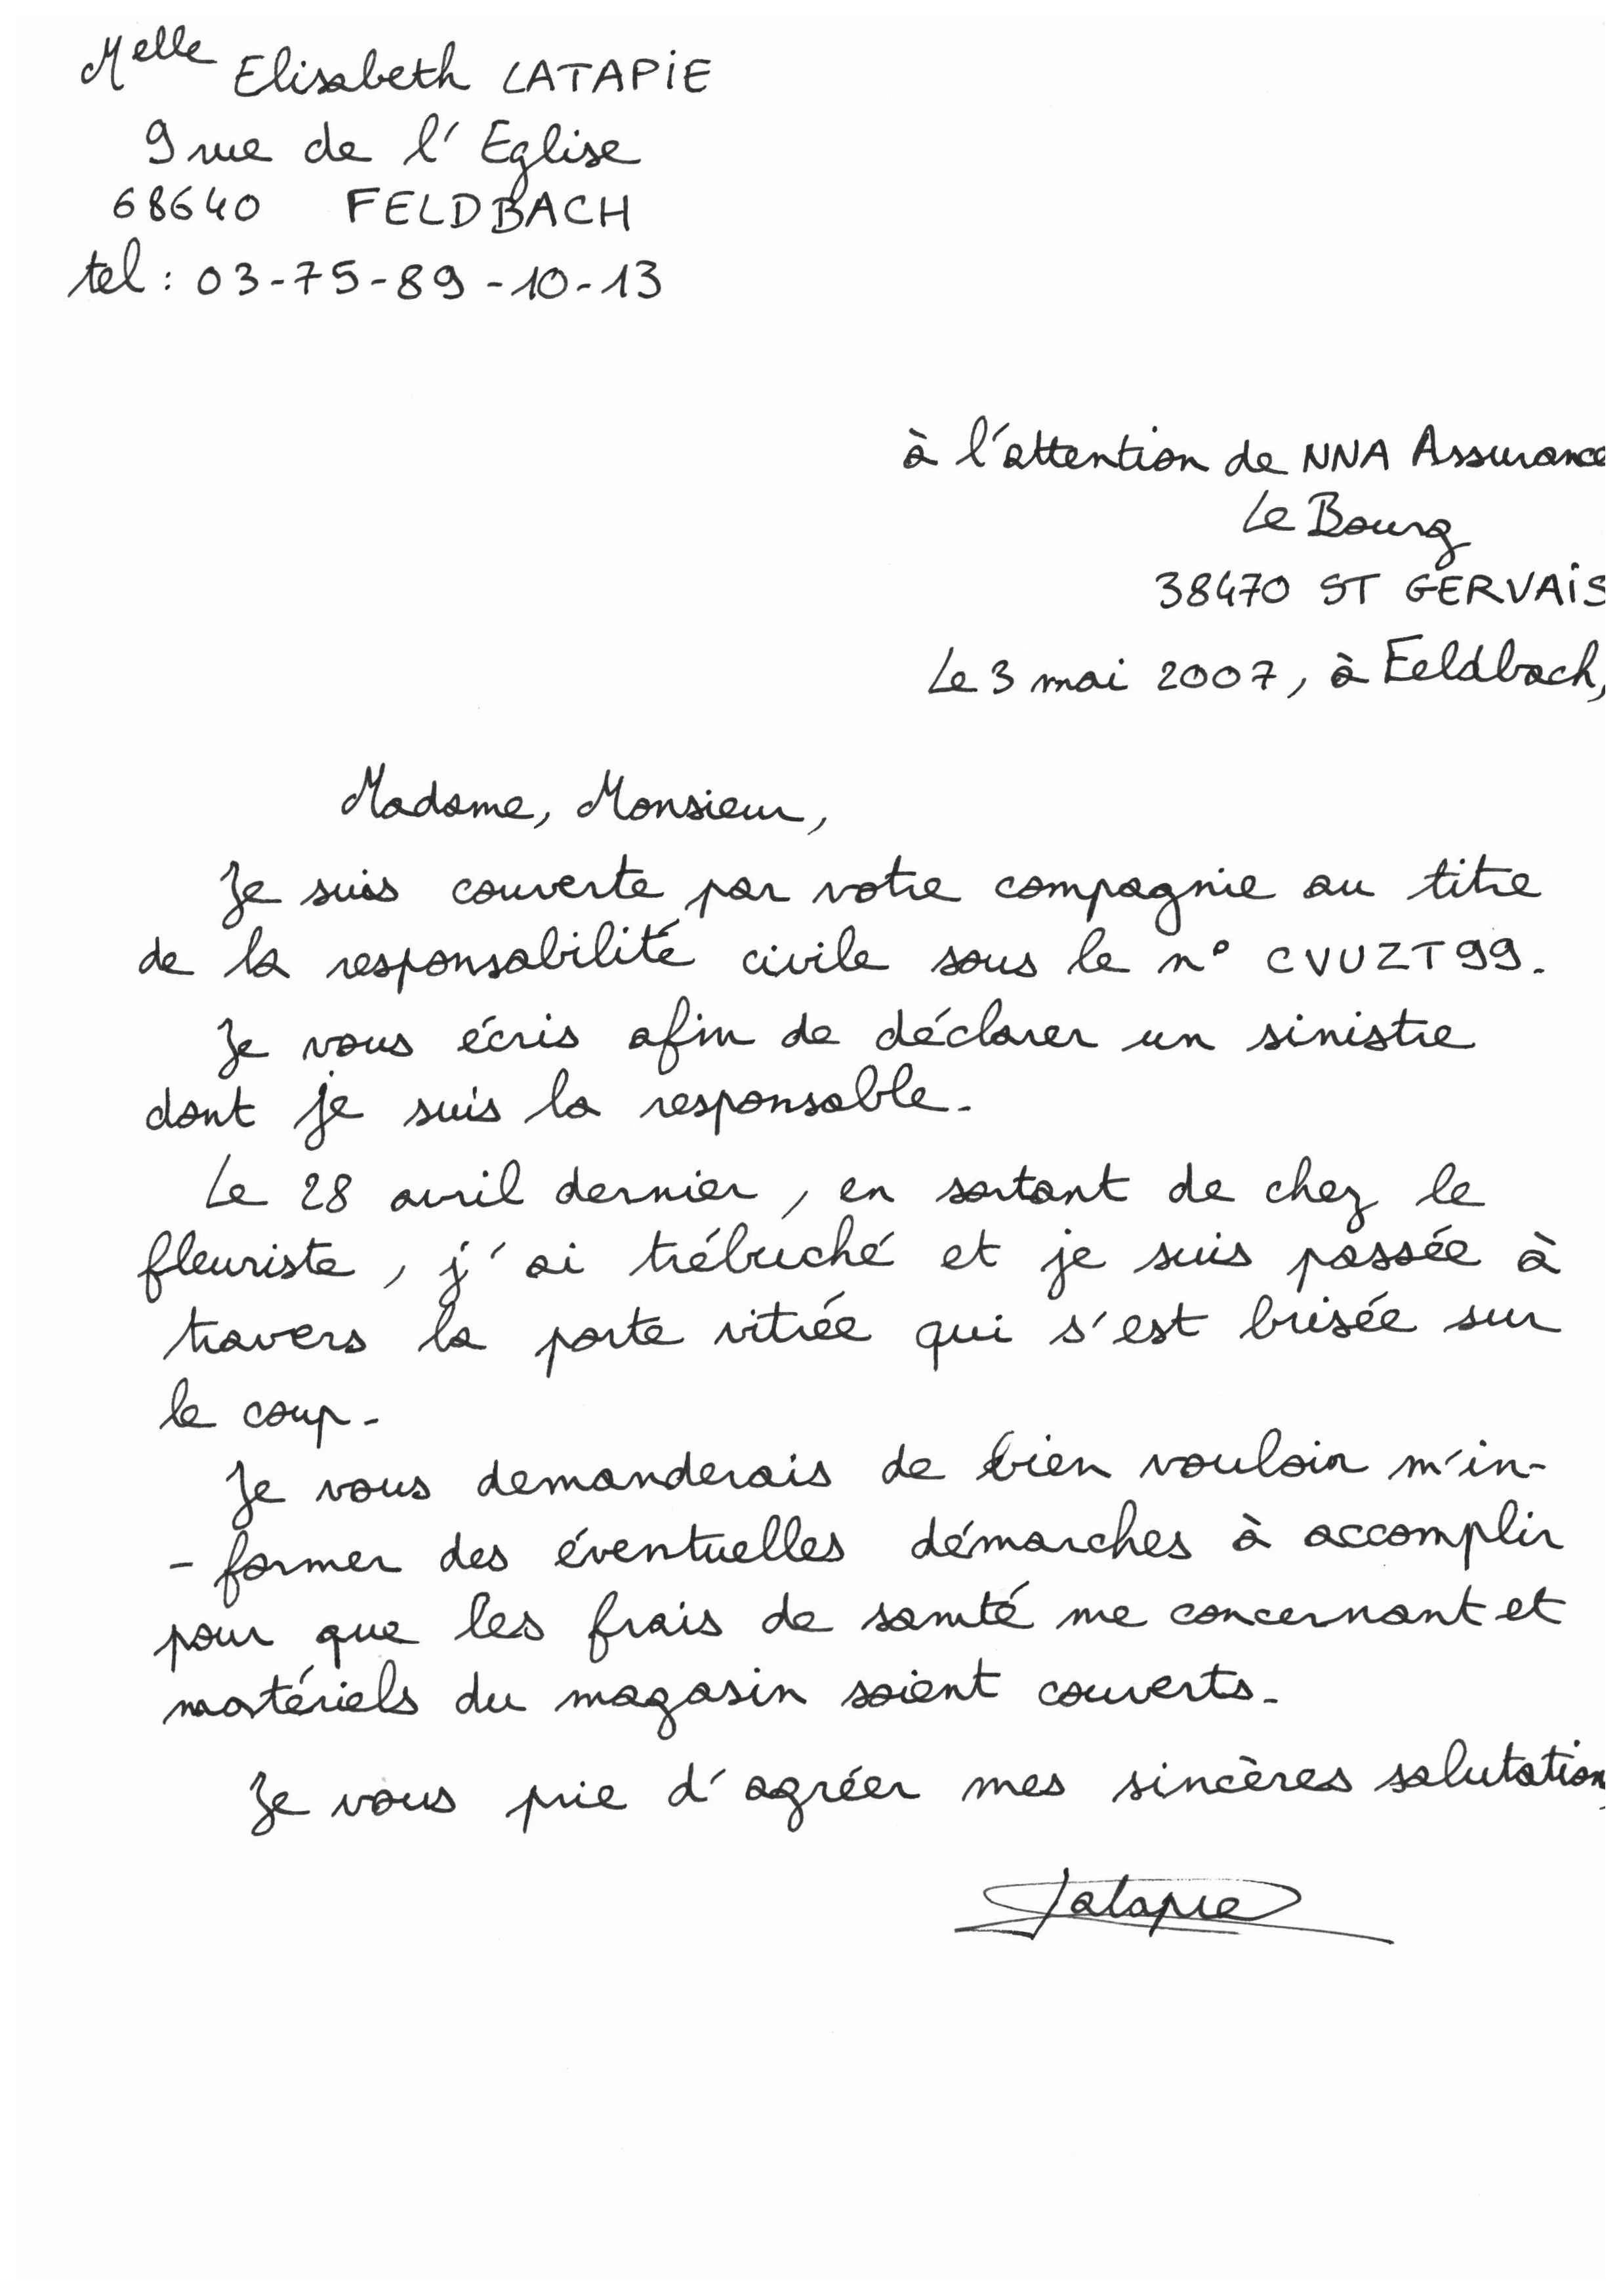 Melle Elisabeth LATAPIE
9 rue de l'Eglise
68640 FELDBACH
tel : 03-75-89-10-13
à l'attention de NNA Assurance
Le Bourg
38470 ST GERVAIS
Le 3 mai 2007, à Feldbach,
Madame, Monsieur,
Je suis couverte par votre compagnie au titre
de la responsabilité civile sous le n° CVUZT99.
Je vous écris afin de déclarer un sinistre
dont je suis la responsable.
Le 28 avril dernier, en sortant de chez le
fleuriste, j'ai trébuché et je suis passée à
travers la porte vitrée qui s'est brisée sur
le coup.
Je vous demanderais de bien vouloir m'in-
-former des éventuelles démarches à accomplir
pour que les frais de santé me concernant et
matériels du magasin soient couverts.
Je vous prie d'agréer mes sincères salutation
Latapie